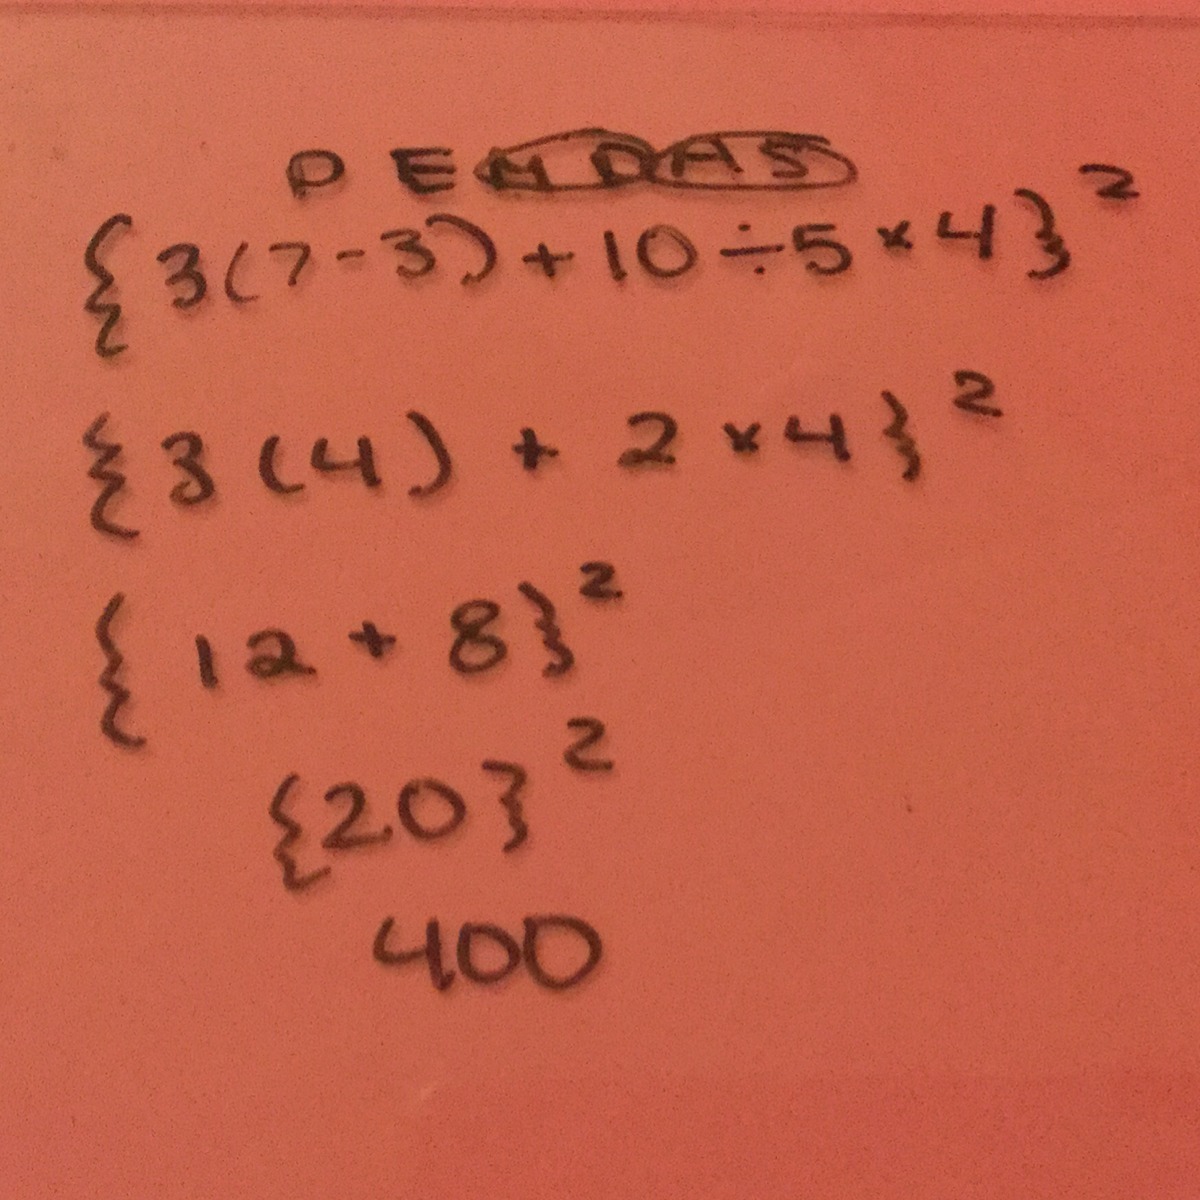 PEMDAS
{3(7-3)+10÷5×4}²
{3(4)+2×4}²
{12+8}²
{20}²
400